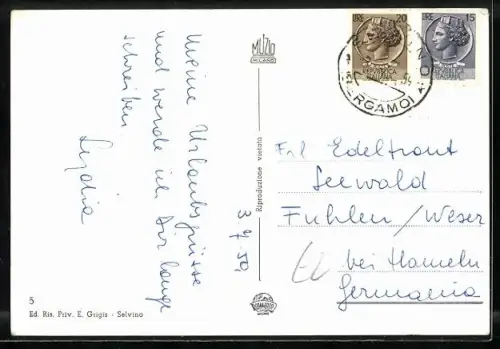 Meine Urlaubsgrüsse
und werde ich Dir lange
schreiben.
Lydia
3.7.59
MUZIO
MILANO
Riproduzione vietata
5
Ed. Ris. Priv. E. Grigis - Selvino
LIRE 20
REPUBBLICA
ITALIANA
LIRE 15
REPUBBLICA
ITALIANA
BERGAMO
Frl Edeltraut
Seewald
Fuhlen/Weser
bei Hameln
Germania